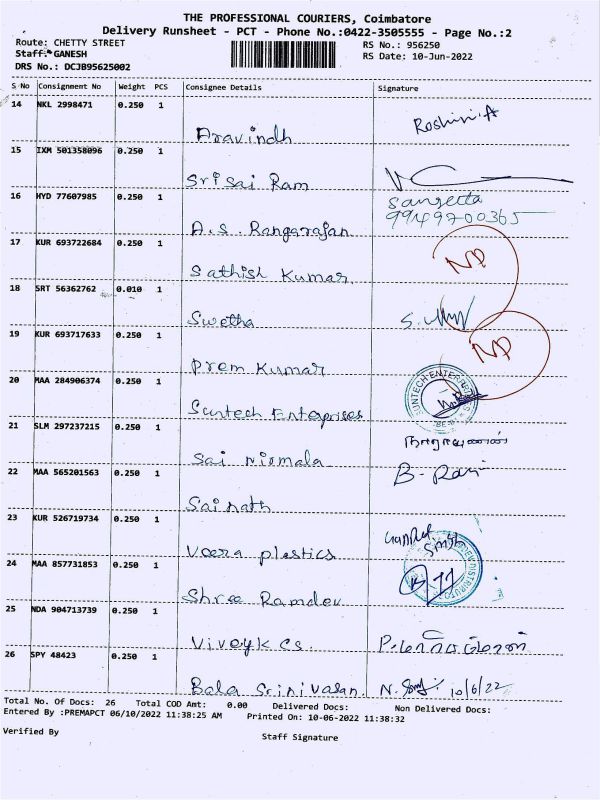 THE PROFESSIONAL COURIERS, Coimbatore
Delivery Runsheet - PCT - Phone No.:0422-3505555 - Page No.:2
Route: CHETTY STREET
RS No.: 956250
Staff: GANESH
RS Date: 10-Jun-2022
DRS No.: DCJB95625002
S No Consignment No Weight PCS Consignee Details Signature
14 NKL 2998471 0.250 1
Aravindh Roshini.A
15 IXM 501358096 0.250 1
Sri Sai Ram
16 HYD 77607985 0.250 1 Sangeetta
9949700365
A.S. Rangarajan
17 KUR 693722684 0.250 1 NP
Sathish Kumar
18 SRT 56362762 0.010 1
Swetha
19 KUR 693717633 0.250 1 NP
Prem Kumar
20 MAA 284906374 0.250 1 SUNTECH ENTER
Suntech Enterprises
21 SLM 297237215 0.250 1
Sai Nirmala
22 MAA 565201563 0.250 1 B. Ravi
Sainath
23 KUR 526719734 0.250 1
Veera plastics Singh
24 MAA 857731853 0.250 1
Shree Ramdev
25 NDA 904713739 0.250 1
Viveyk cs.
26 SPY 48423 0.250 1
Bala Srinivasan 10/6/22
Total No. Of Docs: 26 Total COD Amt: 0.00 Delivered Docs: Non Delivered Docs:
Entered By :PREMAPCT 06/10/2022 11:38:25 AM Printed On: 10-06-2022 11:38:32
Verified By
Staff Signature